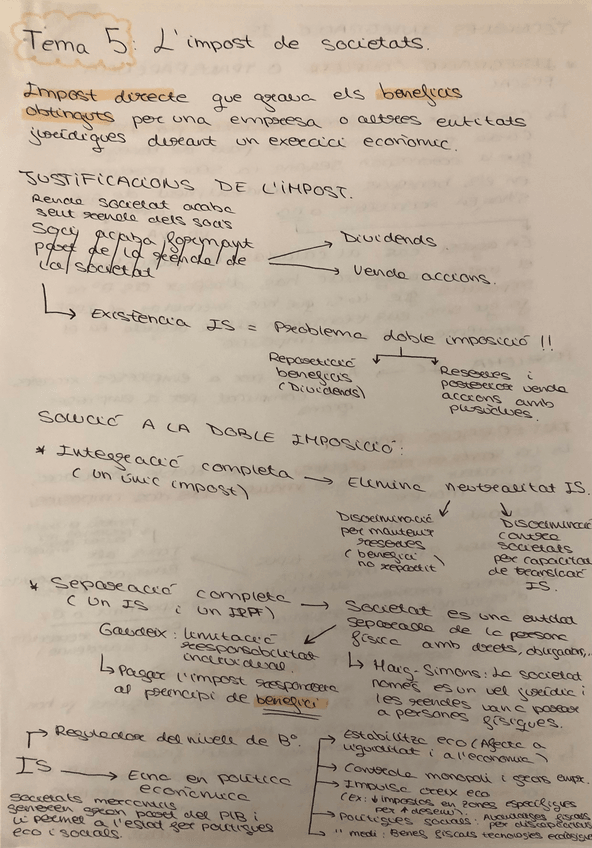 Tema 5: L'impost de societats.
Impost directe que grava els beneficis
obtinguts per una empresa o altres entitats
jurídiques durant un exercici econòmic.
JUSTIFICACIONS DE L'IMPOST.
Renda societat acaba
sent renda dels socis
Soci acaba formant
part de la renda de
la societat
Dividends
Venda accions.
Existència IS = Problema doble imposició !!
Repartició
beneficis
(Dividends)
Reserves i
posterior venda
accions amb
plusvàlues.
SOLUCIÓ A LA DOBLE IMPOSICIÓ:
* Integració completa → Elimina neutralitat IS.
(un únic impost)
Discriminació
per mantenir
reserves
(benefici
no repartit)
Discriminació
contra
societats
per capacitat
de traslladar
IS.
* Separació completa → Societat es una entitat
(un IS i un IRPF)
separada de la persona
física amb drets, obligacions,...
Gaudeix: limitació
responsabilitat
individual.
↳ Pagar l'impost respondera
al principi de benefici
↳ Haig-Simons: La societat
només es un vel jurídic i
les rendes van a parar
a persones físiques.
→ Regulador del nivell de Bº.
IS → Eina en política
econòmica
societats mercantils
generen gran part del PIB i
li permet a l'estat fer polítiques
eco i socials.
→ Estabilitza eco (Afecta a
liquiditat i a l'economia)
→ Controla monopoli i grans empr.
→ Impulsa creix eco
(Ex: ↓ impostos en zones específiques
per ↑ desenv).
→ Polítiques socials: Avantatges fiscals
per discapacitats
→ " medi: Benes fiscals tecnologies ecològiques